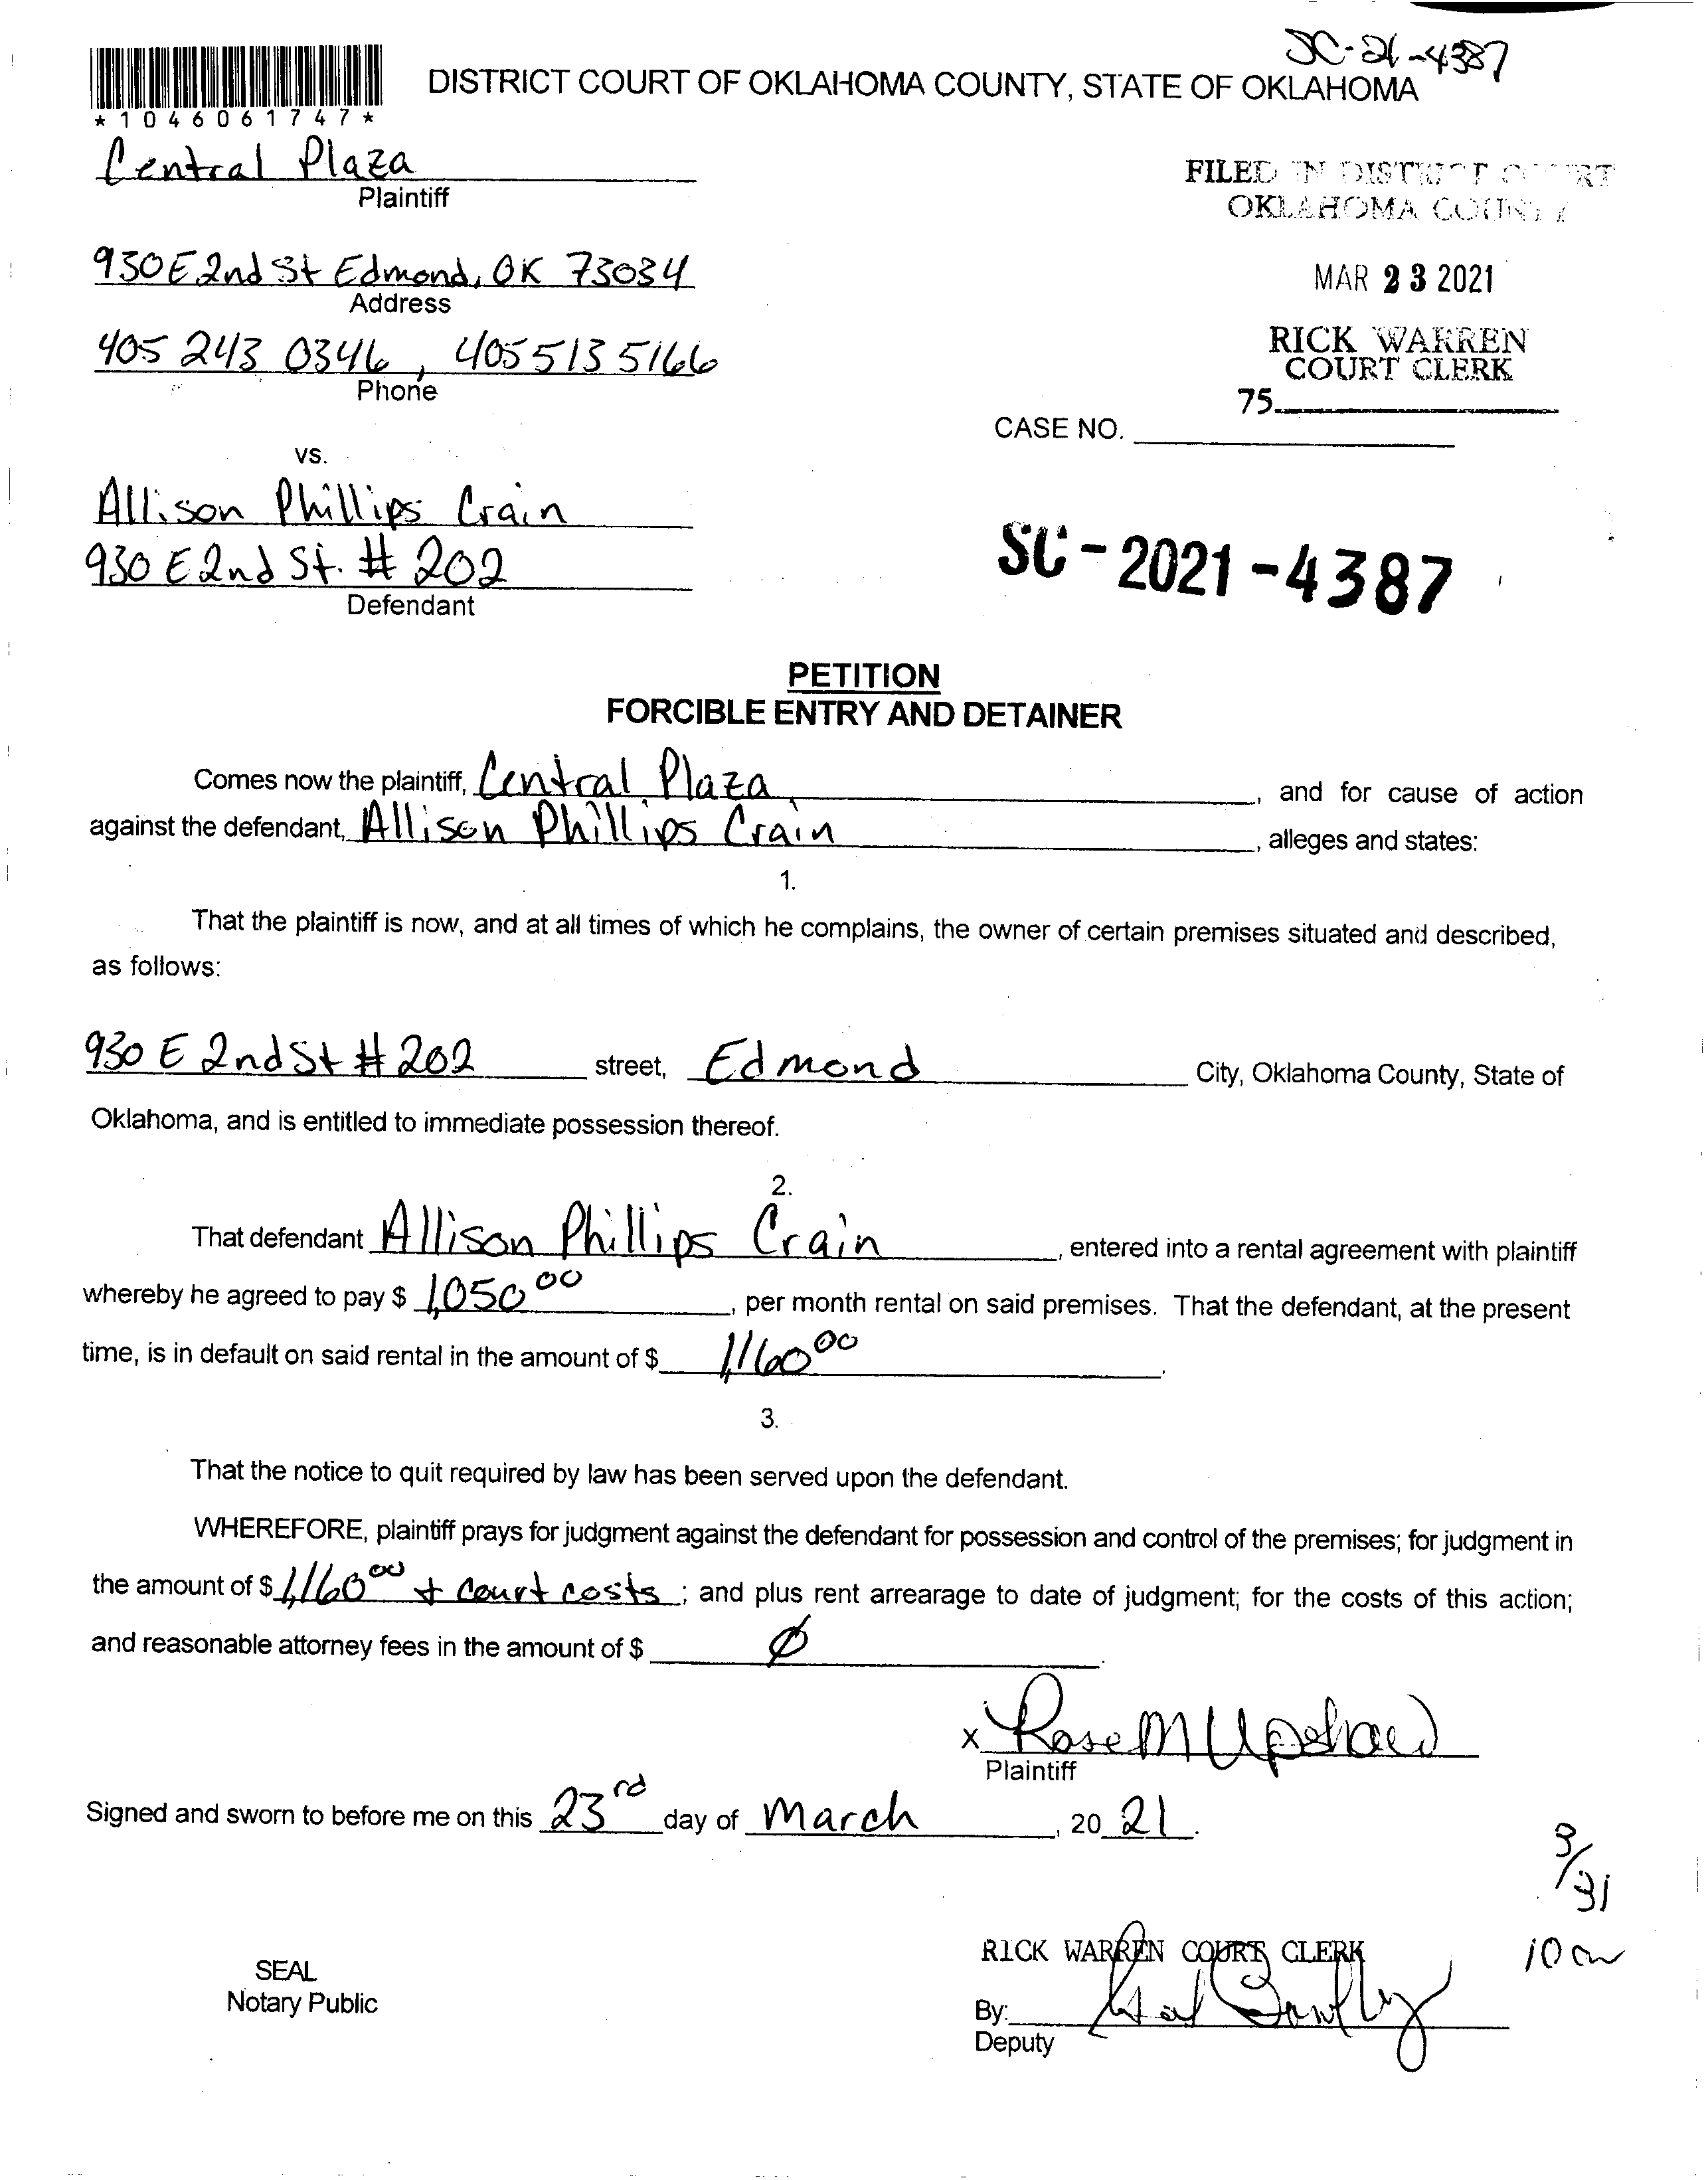 SC-21-4387
*1046061747*
DISTRICT COURT OF OKLAHOMA COUNTY, STATE OF OKLAHOMA
Central Plaza
Plaintiff
FILED IN DISTRICT COURT
OKLAHOMA COUNTY
930 E 2nd St Edmond, OK 73034
Address
MAR 23 2021
405 243 0346, 405 513 5166
Phone
RICK WARREN
COURT CLERK
75
CASE NO.
vs.
Allison Phillips Crain
930 E 2nd St. # 202
Defendant
SC-2021-4387
PETITION
FORCIBLE ENTRY AND DETAINER
Comes now the plaintiff, Central Plaza, and for cause of action
against the defendant, Allison Phillips Crain, alleges and states:
1.
That the plaintiff is now, and at all times of which he complains, the owner of certain premises situated and described,
as follows:
930 E 2nd St # 202 street, Edmond City, Oklahoma County, State of
Oklahoma, and is entitled to immediate possession thereof.
2.
That defendant Allison Phillips Crain, entered into a rental agreement with plaintiff
whereby he agreed to pay $ 1,050 00, per month rental on said premises. That the defendant, at the present
time, is in default on said rental in the amount of $ 1,160 00.
3.
That the notice to quit required by law has been served upon the defendant.
WHEREFORE, plaintiff prays for judgment against the defendant for possession and control of the premises; for judgment in
the amount of $ 1,160 00 + court costs; and plus rent arrearage to date of judgment; for the costs of this action;
and reasonable attorney fees in the amount of $ Ø.
x Rose M Upshaw
Plaintiff
Signed and sworn to before me on this 23rd day of March, 20 21.
3/31
10 am
RICK WARREN COURT CLERK
SEAL
Notary Public
By:
Deputy